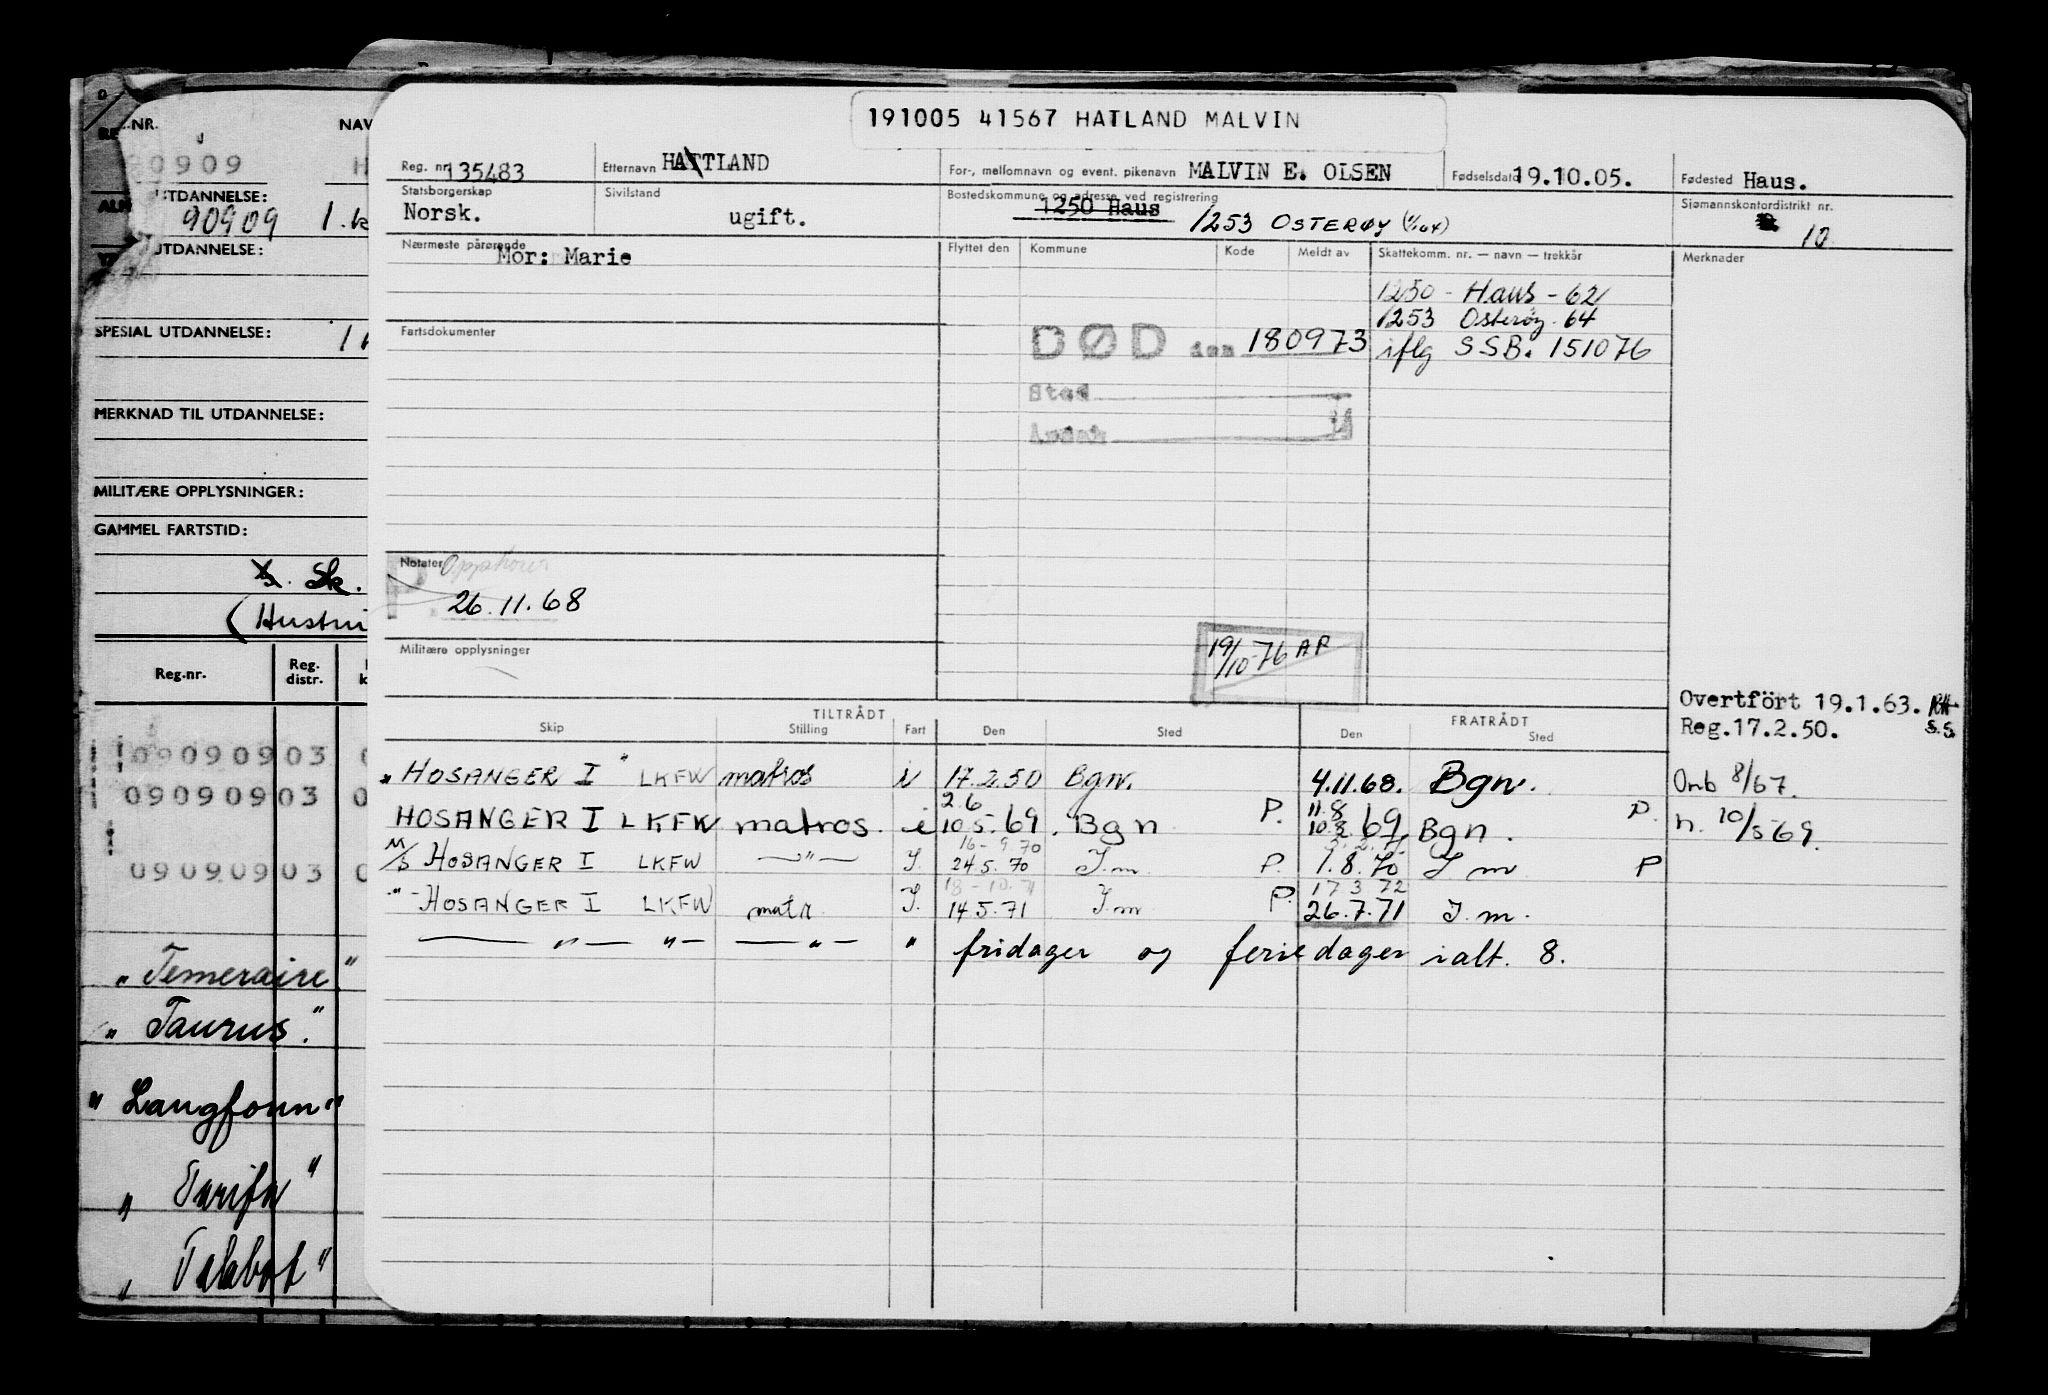 191005 41567 HATLAND MALVIN
Reg. nr. 135483
Etternavn HATTLAND
For-, mellomnavn og event. pikenavn MALVIN E. OLSEN
Fødselsdato 19.10.05.
Fødested Haus.
Statsborgerskap Norsk.
Sivilstand ugift.
Bostedskommune og adresse ved registrering
1250 Haus 1253 OSTERØY
Sjømannskontordistrikt nr.
10
Nærmeste pårørende
Mor: Marie
Flyttet den Kommune Kode Meldt av Skattekomm. nr. — navn — trekkår Merknader
1250 - Haus - 62
1253 Osterøy - 64
Fartsdokumenter
DØD den 180973 iflg SSB. 151076
Sted
Notater
26.11.68
Militære opplysninger
19/10-76 AP
Overtført 19.1.63.
Reg.17.2.50. S.S.
TILTRÅDT FRATRÅDT
Skip Stilling Fart Den Sted Den Sted
"HOSANGER I" LKFW matros i 17.2.50 Bgn. 4.11.68. Bgn. Omb 8/67.
2.6 11.8
HOSANGER I LKFW matros. i 10.5.69. Bgn P. 10.8.69 Bgn. P. n. 10/5 69.
16-9.70
M/S HOSANGER I LKFW —"— I. 24.5.70 I.m P. 1.8.70 I m P
18-10.71 17 3 72
-"- HOSANGER I LKFW matr I. 14.5.71 I m P. 26.7.71 I.m.
— " — "— — " — " fridager og feriedager ialt. 8.
NR. NAV
90909 H
UTDANNELSE:
90909 1.k
UTDANNELSE:
SPESIAL UTDANNELSE:
MERKNAD TIL UTDANNELSE:
MILITÆRE OPPLYSNINGER:
GAMMEL FARTSTID:
Sk.
(Hustru
Reg.nr. Reg. distr.
09090903 0
09090903 0
09090903 0
"Temeraire"
"Taurus."
"Langfonn"
"Tarifa"
"Talabot"